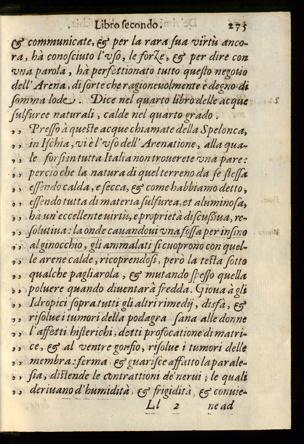 Libro secondo. 275
& communicate, & per la rara sua virtù anco-
ra, hà conosciuto l'vso, le forze, & per dire con
vna parola, hà perfettionato tutto questo negotio
dell'Arena, di sorte che ragioneuolmente è degno di
somma lode. Dice nel quarto libro delle acque
sulfuree naturali, calde nel quarto grado.
,, Presso à queste acque chiamate della Spelonca,
,, in Ischia, vi è l'vso dell'Arenatione, alla qua-
,, le forsi n tutta Italia non trouerete vna pare:
,, percio che la natura di quel terreno da se stessa
,, essendo calda, e secca, & come habbiamo detto,
,, essendo tutta di materia sulfurea, et aluminosa,
,, hà un'eccellente virtù, e proprietà discussiua, re-
,, solutiua: la onde cauandoui vna fossa per insino
,, al ginocchio, gli ammalati si cuoprono con quel-
,, le arene calde, ricoprendosi, però la testa sotto
,, qualche pagliarola, & mutando spesso quella
,, poluere quando diuentarà fredda. Gioua à gli
,, Idropici sopra tutti gli altri rimedij, disfà, &
,, risolue i tumori della podagra sana alle donne
,, l'affetti histerichi, detti profocatione di matri-
,, ce, & al ventre gonfio, risolue i tumori delle
,, membra: ferma & guarisce affatto la parale-
,, sia, distende le contrattioni de nerui; le quali
,, deriuano d'humidità, & frigidità, & conuie-
Ll 2 ne ad